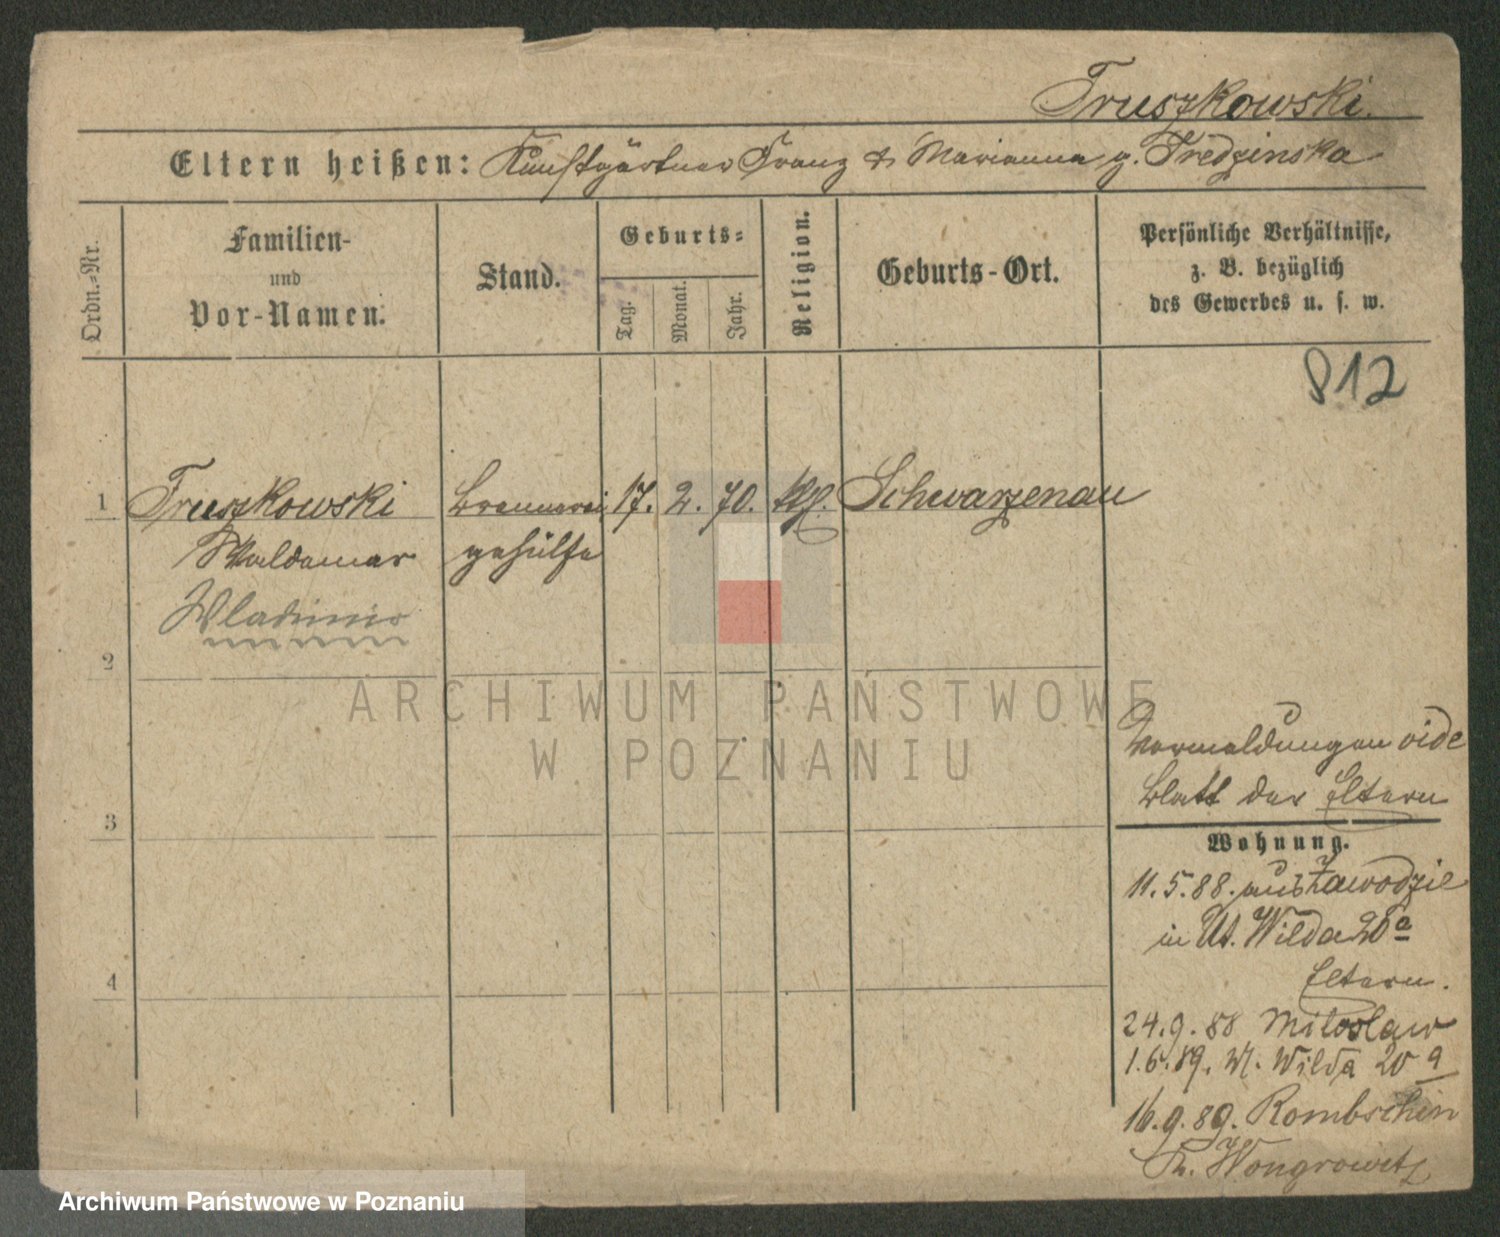 Truszkowski.
Eltern heißen: Kunstgärtner Franz & Marianna g. Tredzinska
Ordn.-Nr.
Familien-
und
Vor-Namen.
Stand.
Geburts-
Tag.
Monat.
Jahr.
Religion.
Geburts-Ort.
Persönliche Verhältnisse,
z. B. bezüglich
des Gewerbes u. s. w.
812
1 Truszkowski Brennerei 17. 2. 70. kth. Schwarzenau
Waldemar gehülfe
Wladimir
2
ARCHIWUM PAŃSTWOWE
W POZNANIU
Vormeldungen vide
Blatt der Eltern
3
Wohnung.
11.5.88. aus Zawodzie
in Ut. Wilda 20a
4
Eltern.
24.9.88 Miloslaw
1.6.89. Ut. Wilda 20a
16.9.89. Rombschin
Kr. Wongrowitz
Archiwum Państwowe w Poznaniu